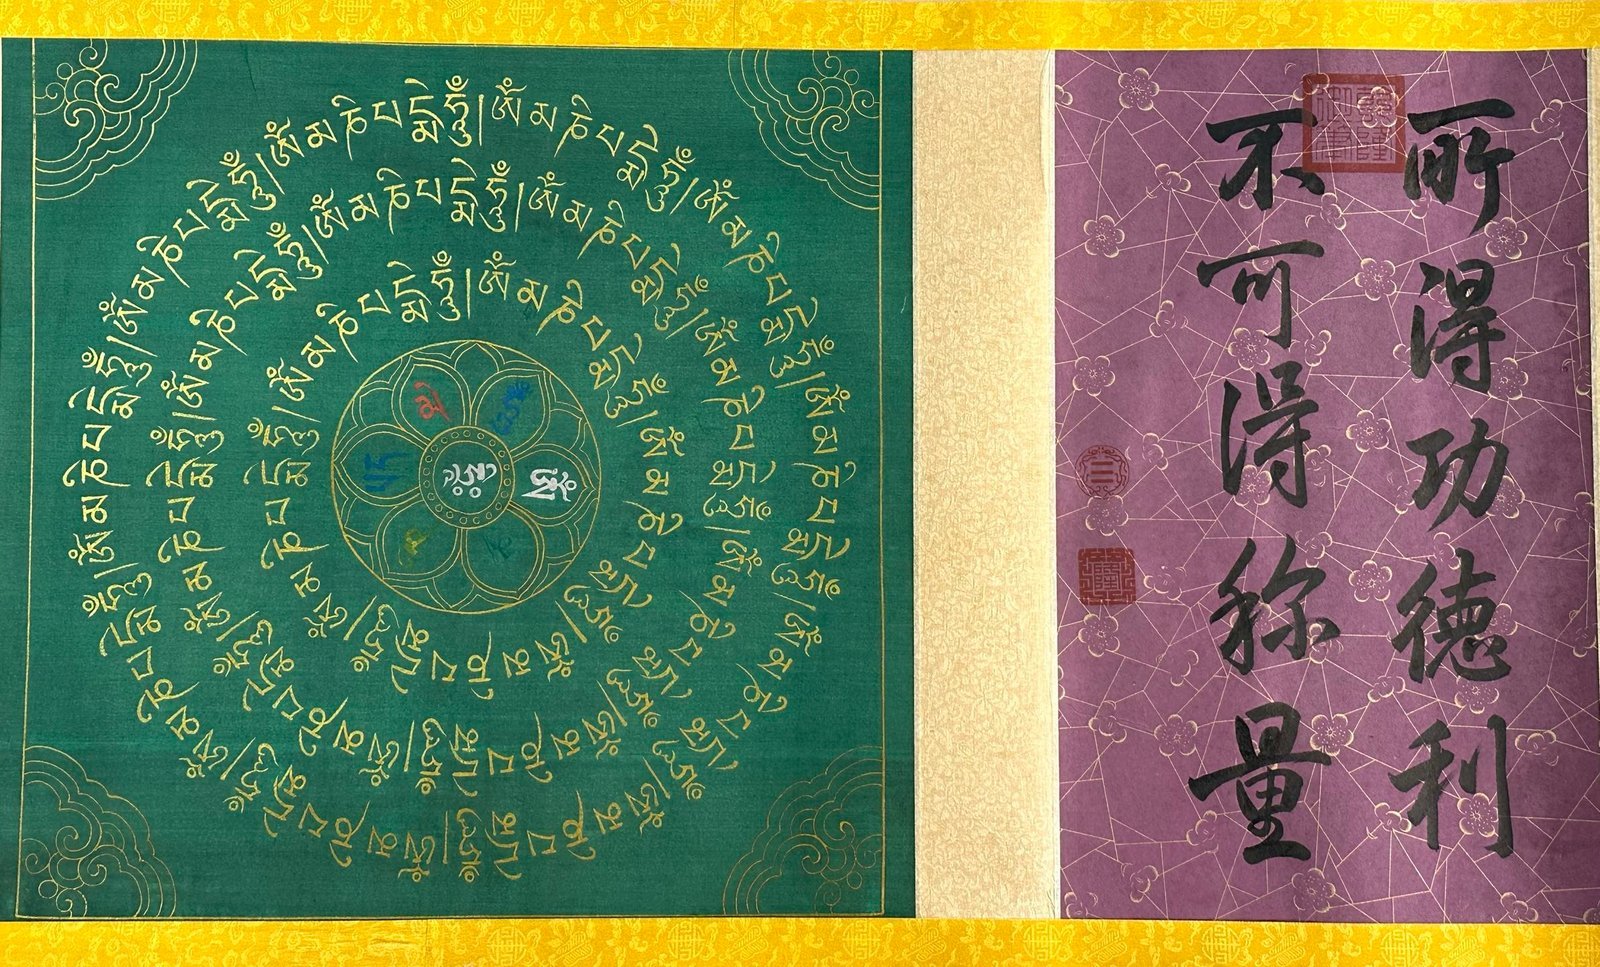 所得功德利
不可得称量
ཨོཾ་མ་ཎི་པདྨེ་ཧཱུྃ།ཨོཾ་མ་ཎི་པདྨེ་ཧཱུྃ།ཨོཾ་མ་ཎི་པདྨེ་ཧཱུྃ།ཨོཾ་མ་ཎི་པདྨེ་ཧཱུྃ།ཨོཾ་མ་ཎི་པདྨེ་ཧཱུྃ།ཨོཾ་མ་ཎི་པདྨེ་ཧཱུྃ།ཨོཾ་མ་ཎི་པདྨེ་ཧཱུྃ།ཨོཾ་མ་ཎི་པདྨེ་ཧཱུྃ།ཨོཾ་མ་ཎི་པདྨེ་ཧཱུྃ།ཨོཾ་མ་ཎི་པདྨེ་ཧཱུྃ།
ཨོཾ་མ་ཎི་པདྨེ་ཧཱུྃ།ཨོཾ་མ་ཎི་པདྨེ་ཧཱུྃ།ཨོཾ་མ་ཎི་པདྨེ་ཧཱུྃ།ཨོཾ་མ་ཎི་པདྨེ་ཧཱུྃ།ཨོཾ་མ་ཎི་པདྨེ་ཧཱུྃ།ཨོཾ་མ་ཎི་པདྨེ་ཧཱུྃ།ཨོཾ་མ་ཎི་པདྨེ་ཧཱུྃ།ཨོཾ་མ་ཎི་པདྨེ་ཧཱུྃ།
ཨོཾ་མ་ཎི་པདྨེ་ཧཱུྃ།ཨོཾ་མ་ཎི་པདྨེ་ཧཱུྃ།ཨོཾ་མ་ཎི་པདྨེ་ཧཱུྃ།ཨོཾ་མ་ཎི་པདྨེ་ཧཱུྃ།ཨོཾ་མ་ཎི་པདྨེ་ཧཱུྃ།